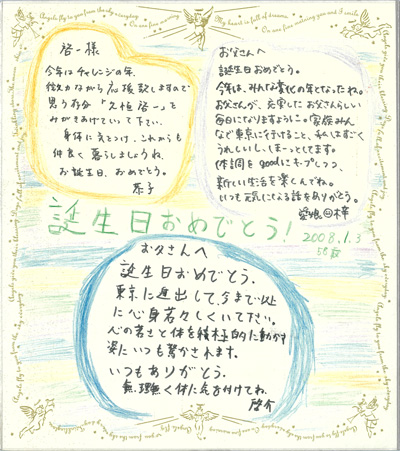 Angels fly to you from the sky everyday
On one fine morning
My heart is full of dreams
啓一様
今年はチャレンジの年、
微力ながら応援致しますので
思う存分「久恒啓一」を
みがきあげていって下さい。
身体に気をつけ、これからも
仲良く暮らしましょうね。
お誕生日、おめでとう。
お父さんへ
誕生日おめでとう。
今年は、みんな変化の年となったね。
お父さんが、充実したお父さんらしい
毎日になりますように。家族みん
なで東京に行けること、私はすごく
うれしいし、ほっとしてます。
体調をgoodにキープしつつ、
新しい生活を楽しんでね。
いつも元気になる話をありがとう。
愛娘
誕生日おめでとう！
2008.1.3
58才
お父さんへ
誕生日おめでとう。
東京に進出して、今まで以上
に心身若々しくいて下さい。
心の若さと体を積極的に動かす
姿にいつも驚かされます。
いつもありがとう。
無理無く体に気を付けてね。
啓介